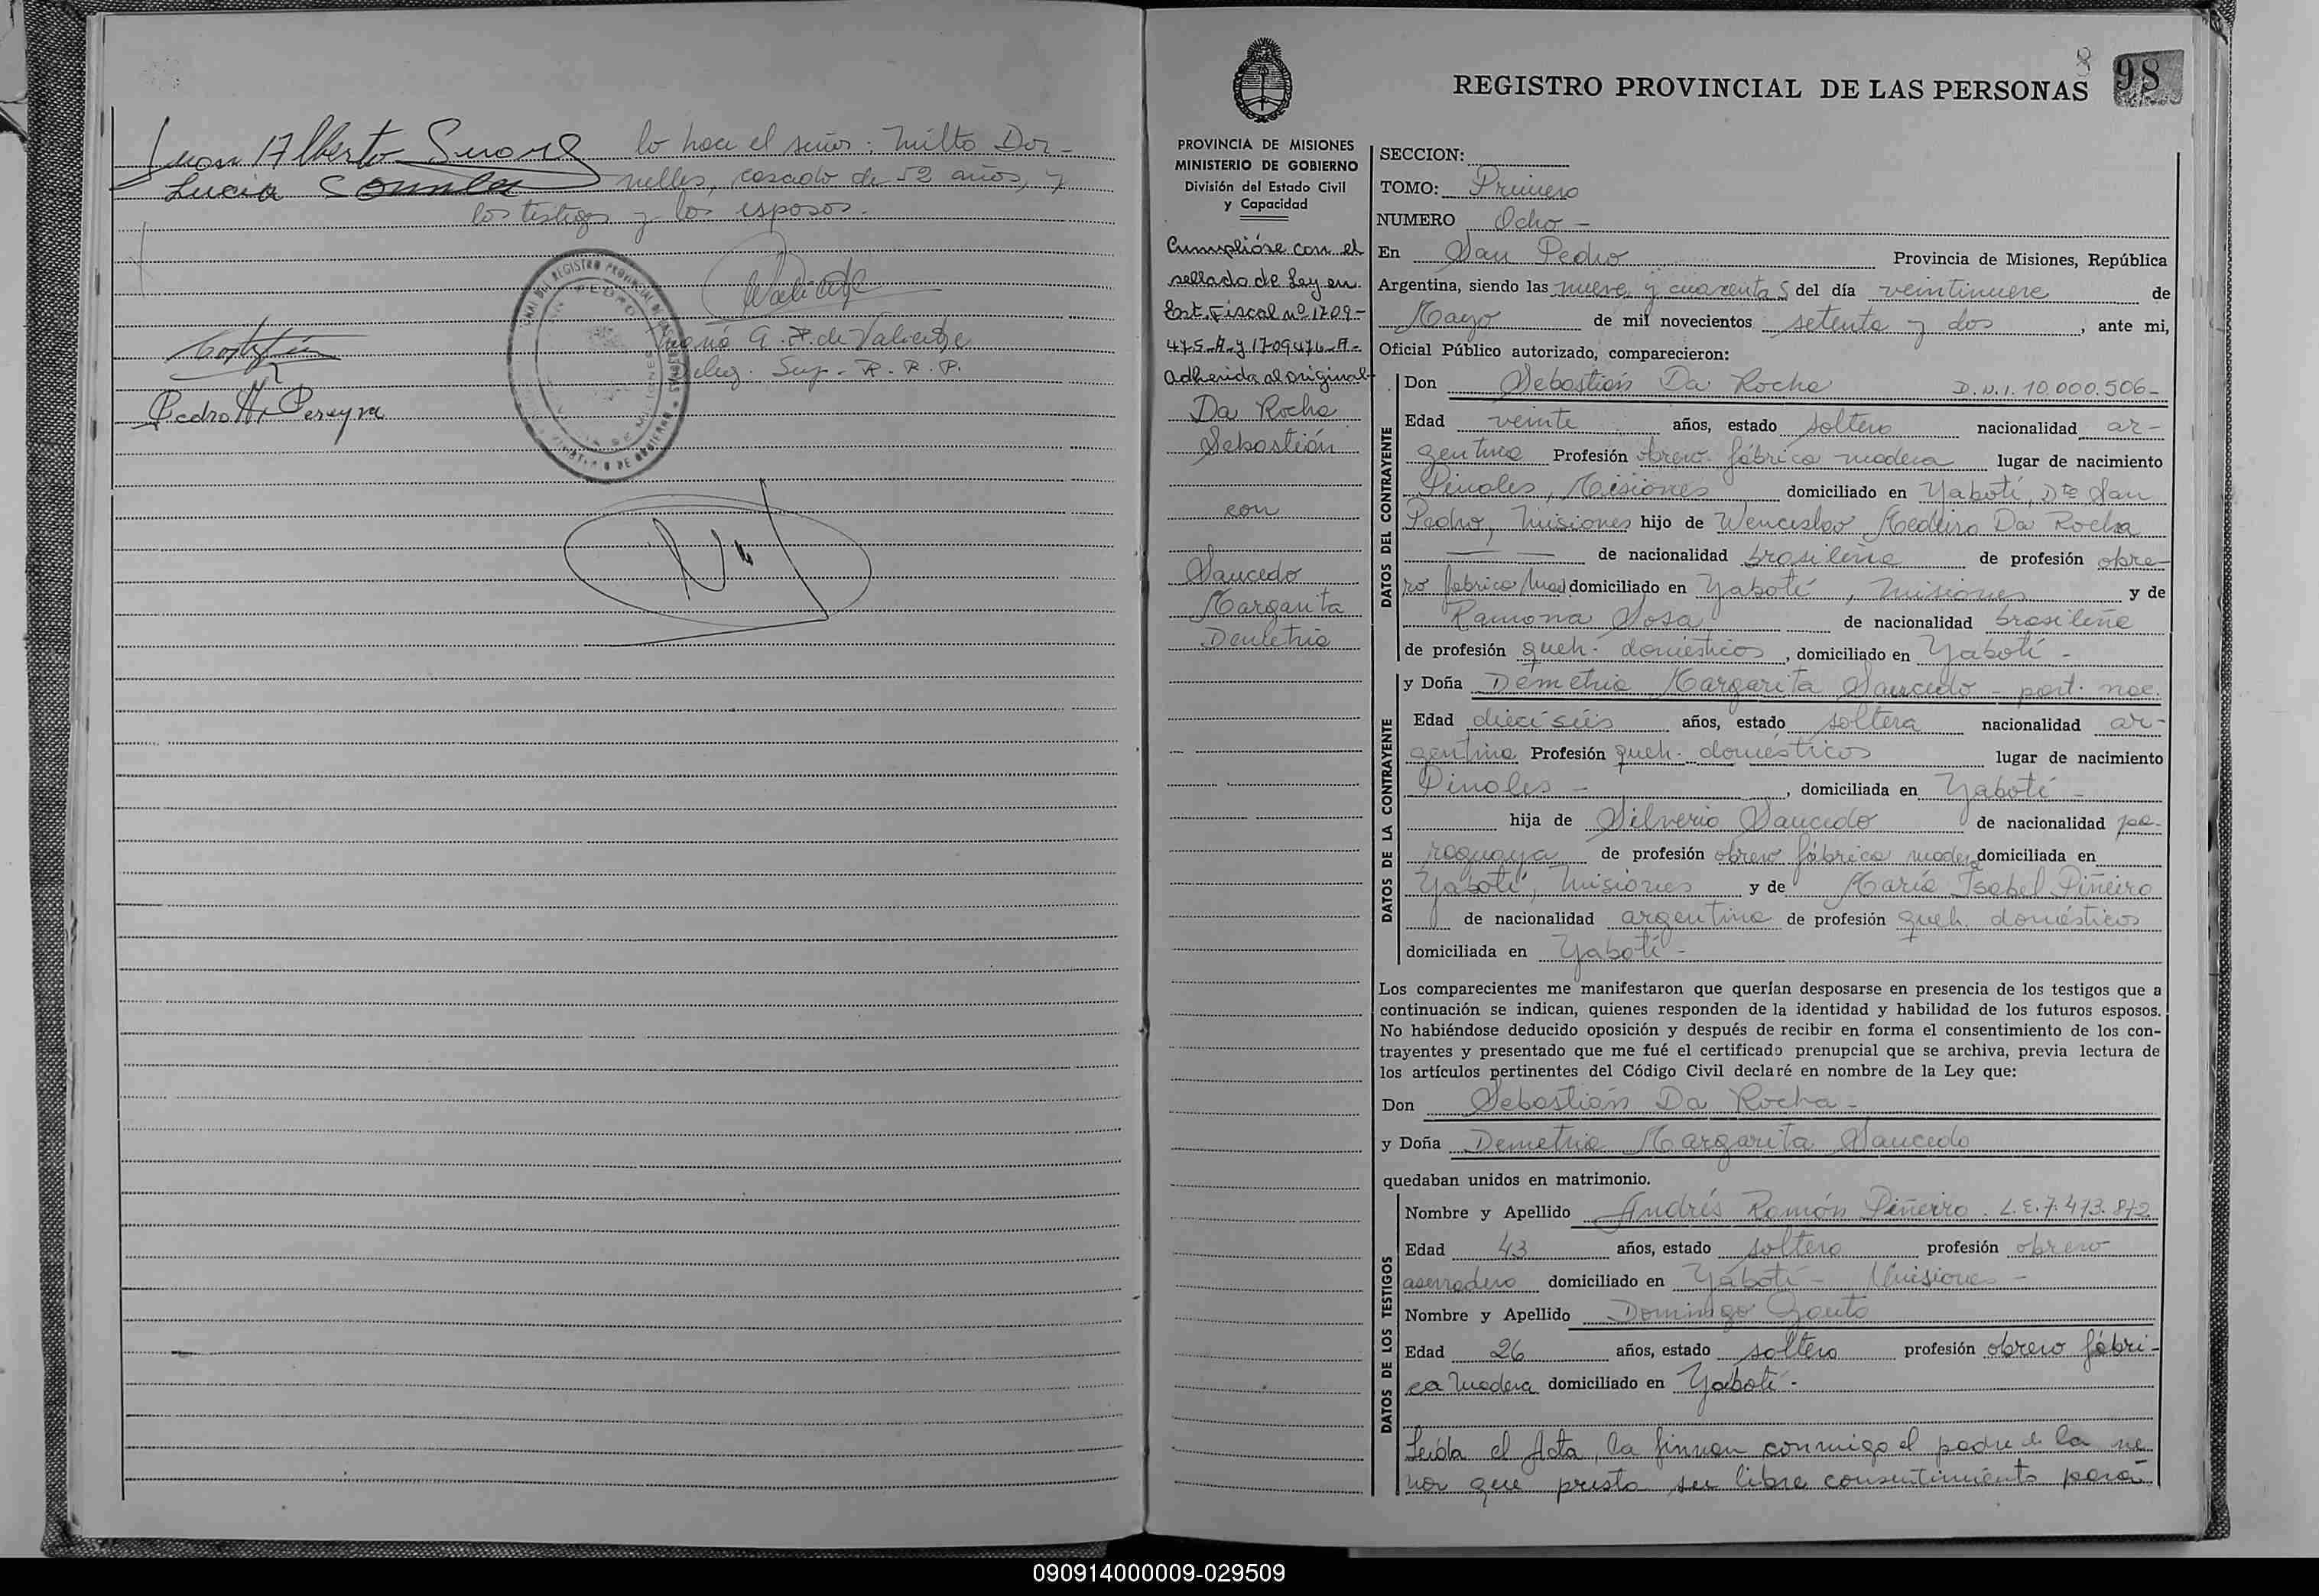 Juan Alberto
lo hace el señor: Milto Dor-
Lucía
nelles, casado de 52 años, y
los testigos y los esposos.
REGISTRO PROVINCIAL
SAN PEDRO
Valiente
G. F. de Valiente
Sup. R. R. P.
Pedro Pereyra
REGISTRO PROVINCIAL DE LAS PERSONAS
98
PROVINCIA DE MISIONES
MINISTERIO DE GOBIERNO
División del Estado Civil
y Capacidad
Cumplióse con el
sellado de Ley en
Est. Fiscal nº 1709-
475-A-y 1709476-A-
adherida al original
Da Rocha
Sebastián
con
Saucedo
Margarita
Demetria
SECCION:
TOMO: Primero
NUMERO Ocho -
En San Pedro Provincia de Misiones, República
Argentina, siendo las nueve y cuarenta 5 del día veintinueve de
Mayo de mil novecientos setenta y dos, ante mi,
Oficial Público autorizado, comparecieron:
DATOS DEL CONTRAYENTE
Don Sebastián Da Rocha D.N.I. 10.000.506-
Edad veinte años, estado soltero nacionalidad ar-
gentina Profesión obrero fábrica madera lugar de nacimiento
Piñales, Misiones domiciliado en Yabotí, Dto San
Pedro, Misiones hijo de Wenceslao Medeiro Da Rocha
de nacionalidad brasileña de profesión obre-
ro fabrica Mad domiciliado en Yabotí, Misiones y de
Ramona Sosa de nacionalidad brasileña
de profesión queh. domésticos, domiciliado en Yabotí -
DATOS DE LA CONTRAYENTE
y Doña Demetria Margarita Saucedo - part. nac.
Edad dieciséis años, estado soltera nacionalidad ar-
gentina Profesión queh. domésticos lugar de nacimiento
Piñales -, domiciliada en Yabotí -
hija de Silverio Saucedo de nacionalidad pa-
raguaya de profesión obrero fábrica madera domiciliada en
Yabotí, Misiones y de María Isabel Piñeiro
de nacionalidad argentina de profesión queh. domésticos
domiciliada en Yabotí -
Los comparecientes me manifestaron que querían desposarse en presencia de los testigos que a
continuación se indican, quienes responden de la identidad y habilidad de los futuros esposos.
No habiéndose deducido oposición y después de recibir en forma el consentimiento de los con-
trayentes y presentado que me fué el certificado prenupcial que se archiva, previa lectura de
los artículos pertinentes del Código Civil declaré en nombre de la Ley que:
Don Sebastián Da Rocha -
y Doña Demetria Margarita Saucedo
quedaban unidos en matrimonio.
DATOS DE LOS TESTIGOS
Nombre y Apellido Andrés Ramón Piñeiro. L.E. 7.473.872
Edad 43 años, estado soltero profesión obrero
aserradero domiciliado en Yabotí - Misiones -
Nombre y Apellido Domingo Gauto
Edad 26 años, estado soltero profesión obrero fábri-
ca Madera domiciliado en Yabotí -
Leída el Acta, la firman conmigo el padre de la me
nor que presta su libre consentimiento para
090914000009-029509